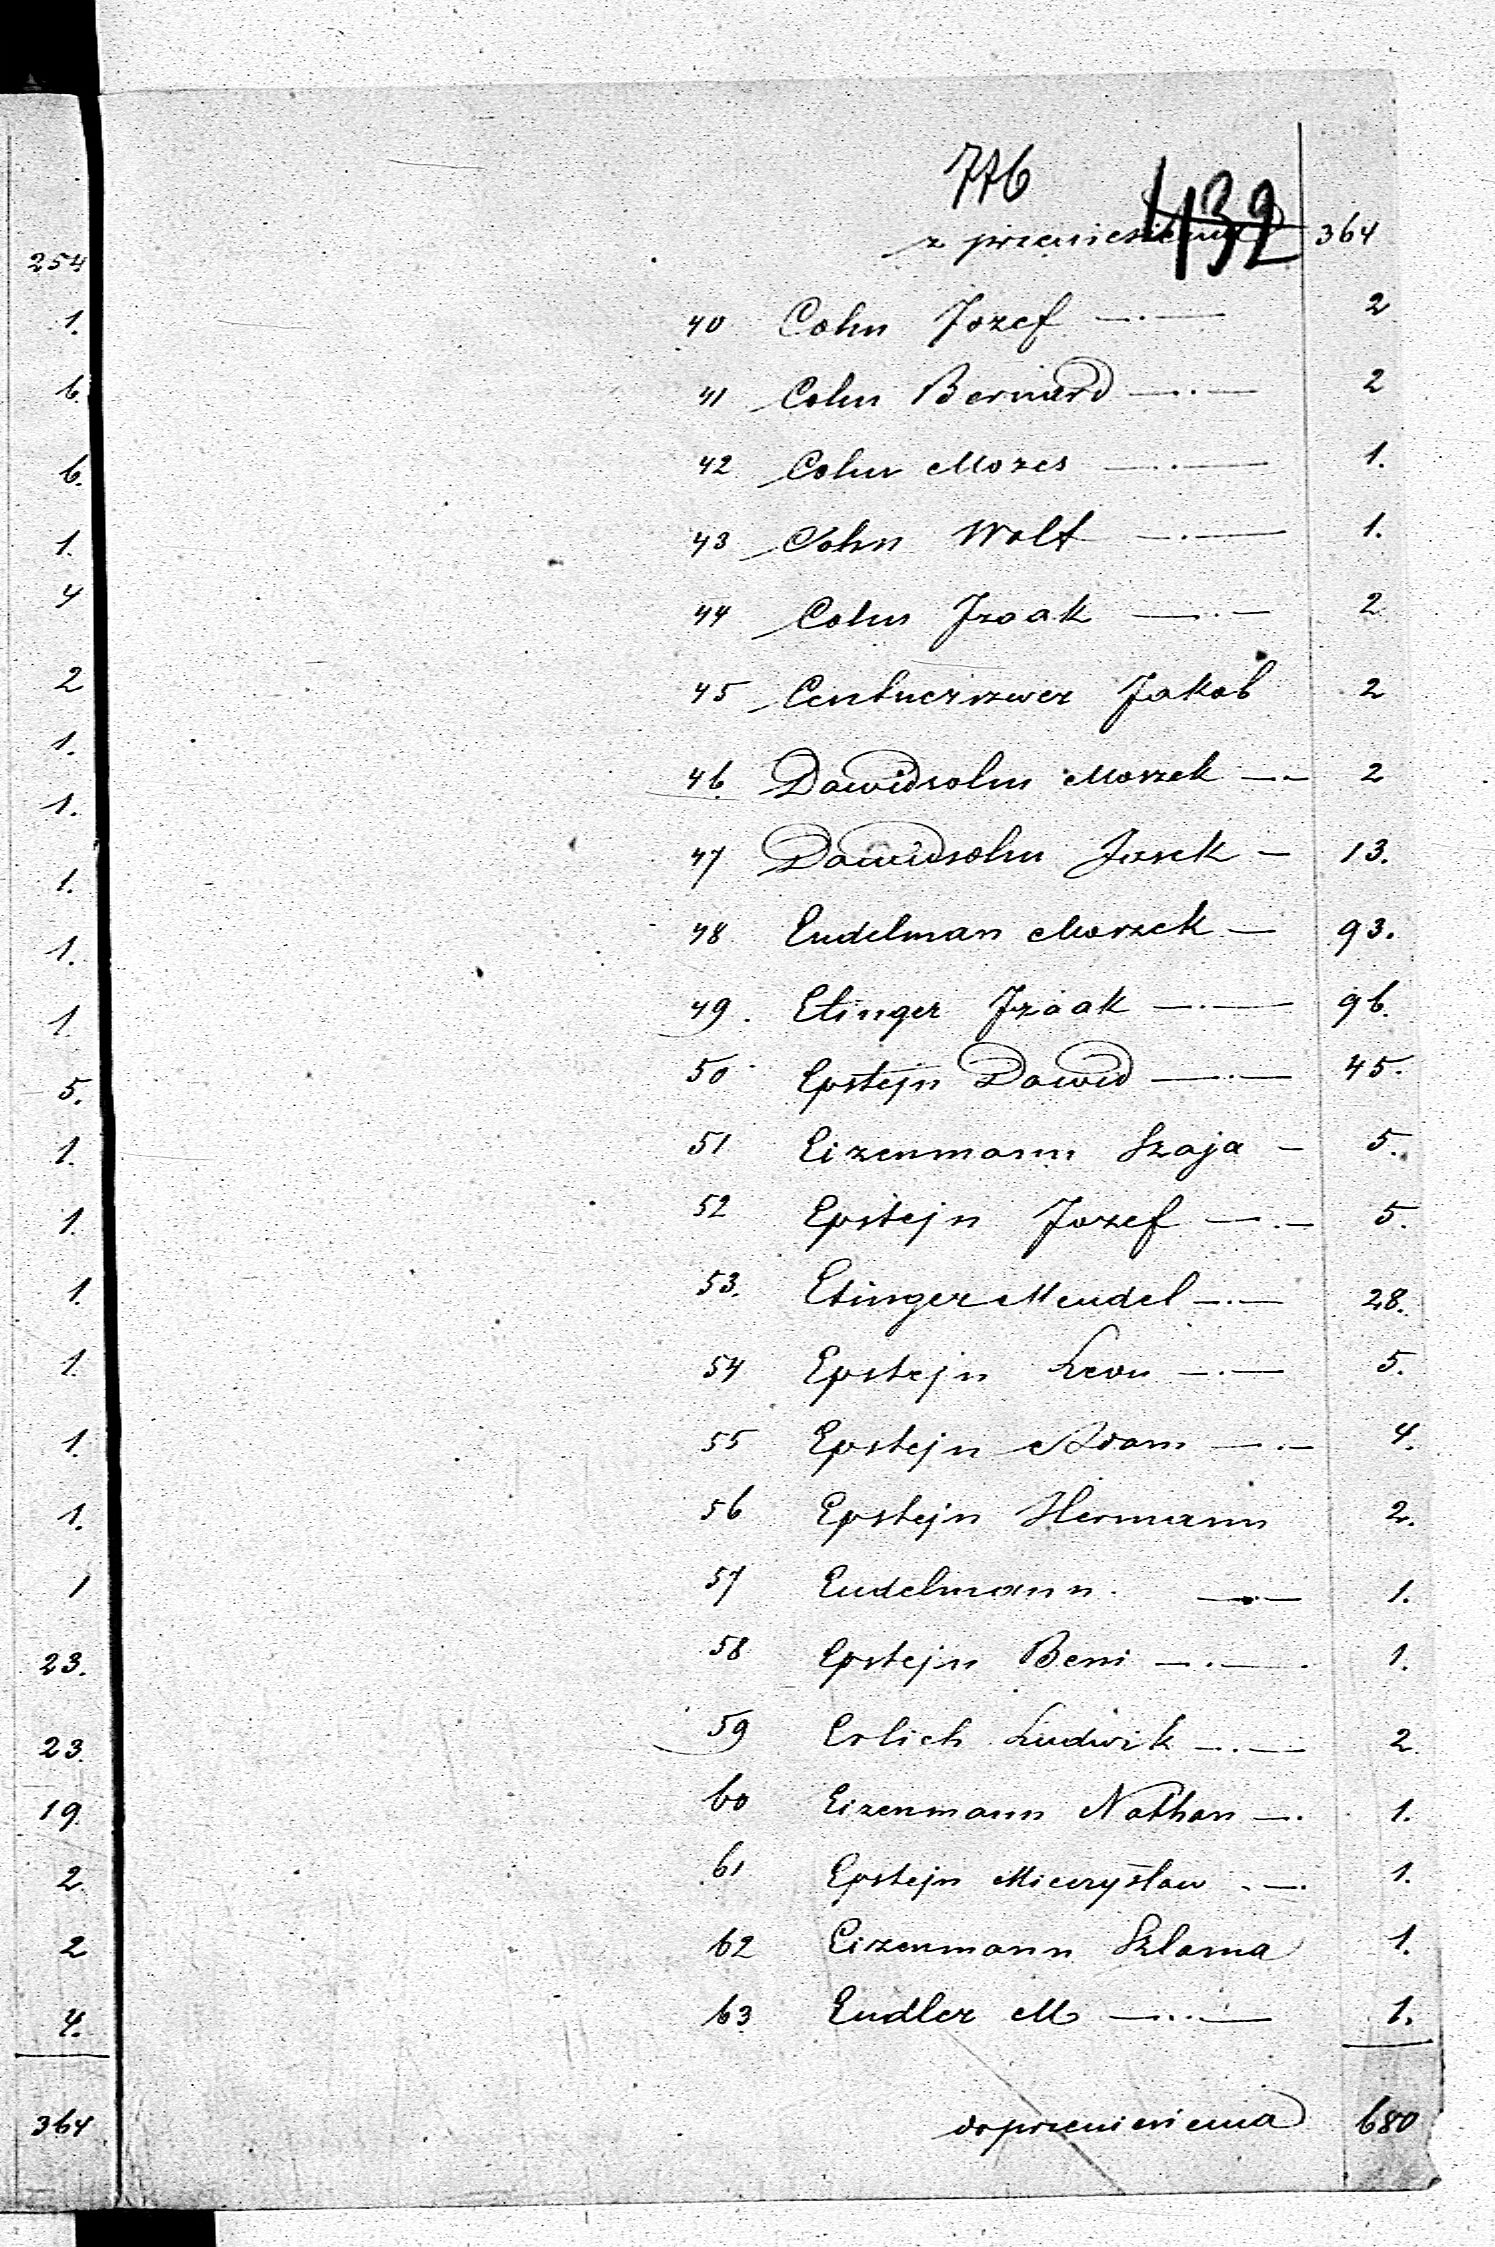 254
1.
6.
6.
1.
4
2
1.
1.
1.
1.
1
5.
1.
1.
1.
1.
1.
1.
1
23.
23.
19.
2
2
4.
364
776
432
z przeniesienia 364
40 Cohn Jozef —·— 2
41 Cohn Bernard —·— 2
42 Cohn Mozes —·— 1.
43 Cohn Wolf —·— 1.
44 Cohn Izaak —·— 2
45 Centnerszwer Jakob 2
46 Dawidsohn Moszek —·— 2
47 Dawidsohn Josek — 13.
48 Eudelman Moszek — 93.
49. Etinger Izaak —·— 96.
50 Epstejn Dawid —·— 45.
51 Eizenmann Szaja — 5.
52 Epstejn Jozef —·— 5.
53. Etinger Mendel —·— 28.
54 Epstejn Leon —·— 5.
55 Epstejn Adam —·— 4.
56 Epstejn Hermann 2.
57 Eudelmann. —·— 1.
58 Epstejn Beni —·— 1.
59 Erlich Ludwik —·— 2
60 Eizenmann Nathan —· 1.
61 Epstejn Mieczysław ·—· 1.
62 Eizenmann Szlama 1.
63 Eudler M —··— 1.
do przeniesienia 680